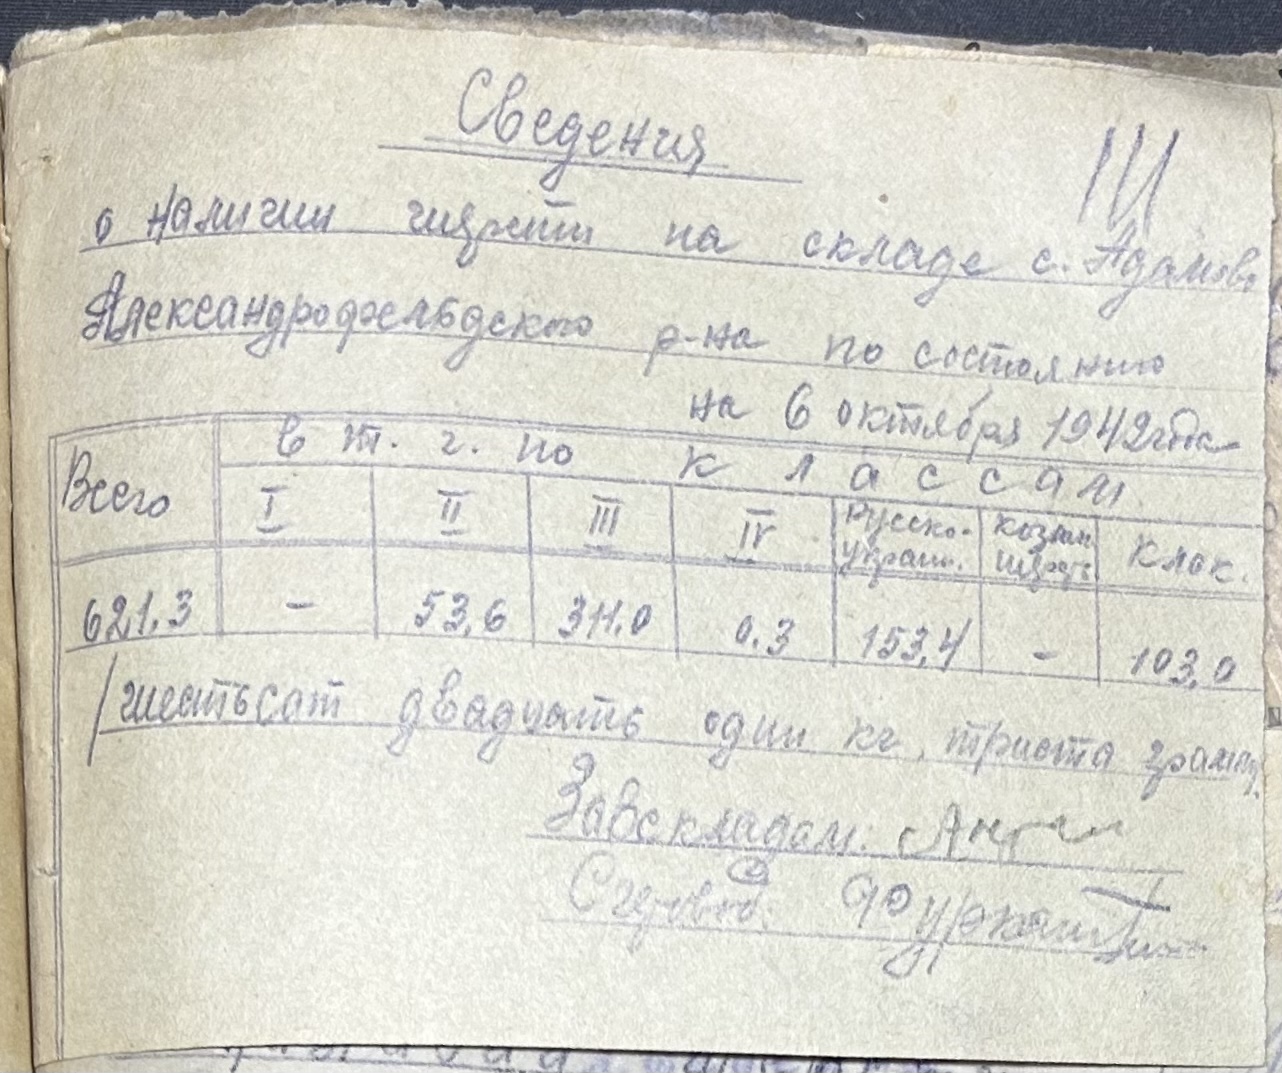 Сведения
III
о наличии шерсти на складе с. Адамово
Александрофельдского р-на по состоянию
на 6 октября 1942 года
Всего
в т. ч. по классам
I II III IV Русско-украин. козья шерсть Клок.
621.3 - 53,6 311.0 0.3 153,4 - 103,0
/шестьсот двадцать один кг, триста грамм/
Завскладом.
Счетовод.